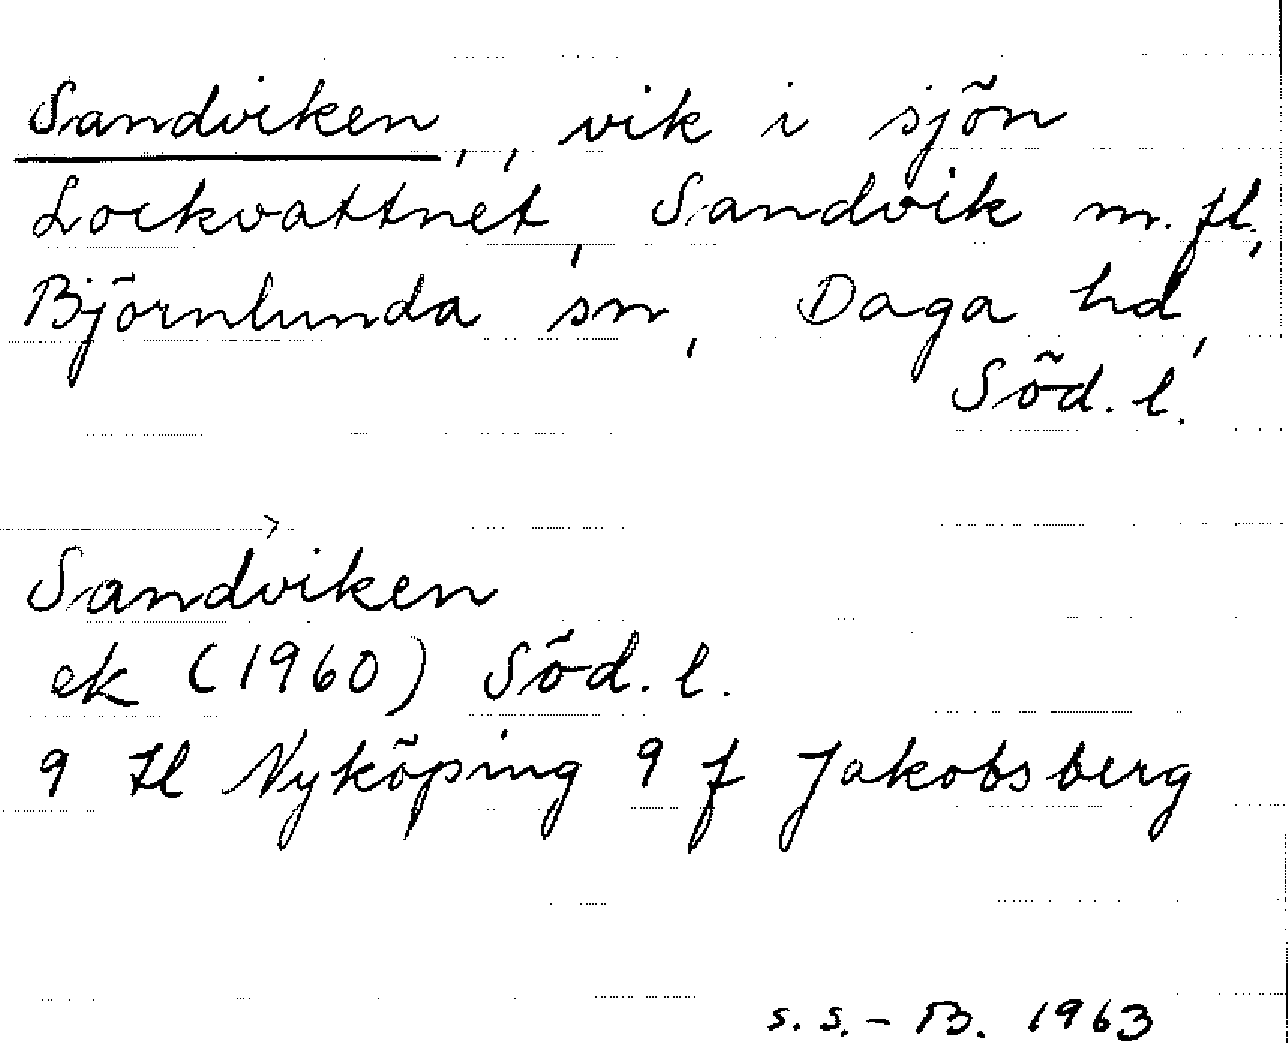 Sandviken, , vik i sjön
Lockvattnet, Sandvik m.fl.,
Björnlunda sn, Daga hd,
Söd. l.
Sandviken
ek (1960) Söd. l.
9 H Nyköping 9 f Jakobsberg
s.s. - B. 1963